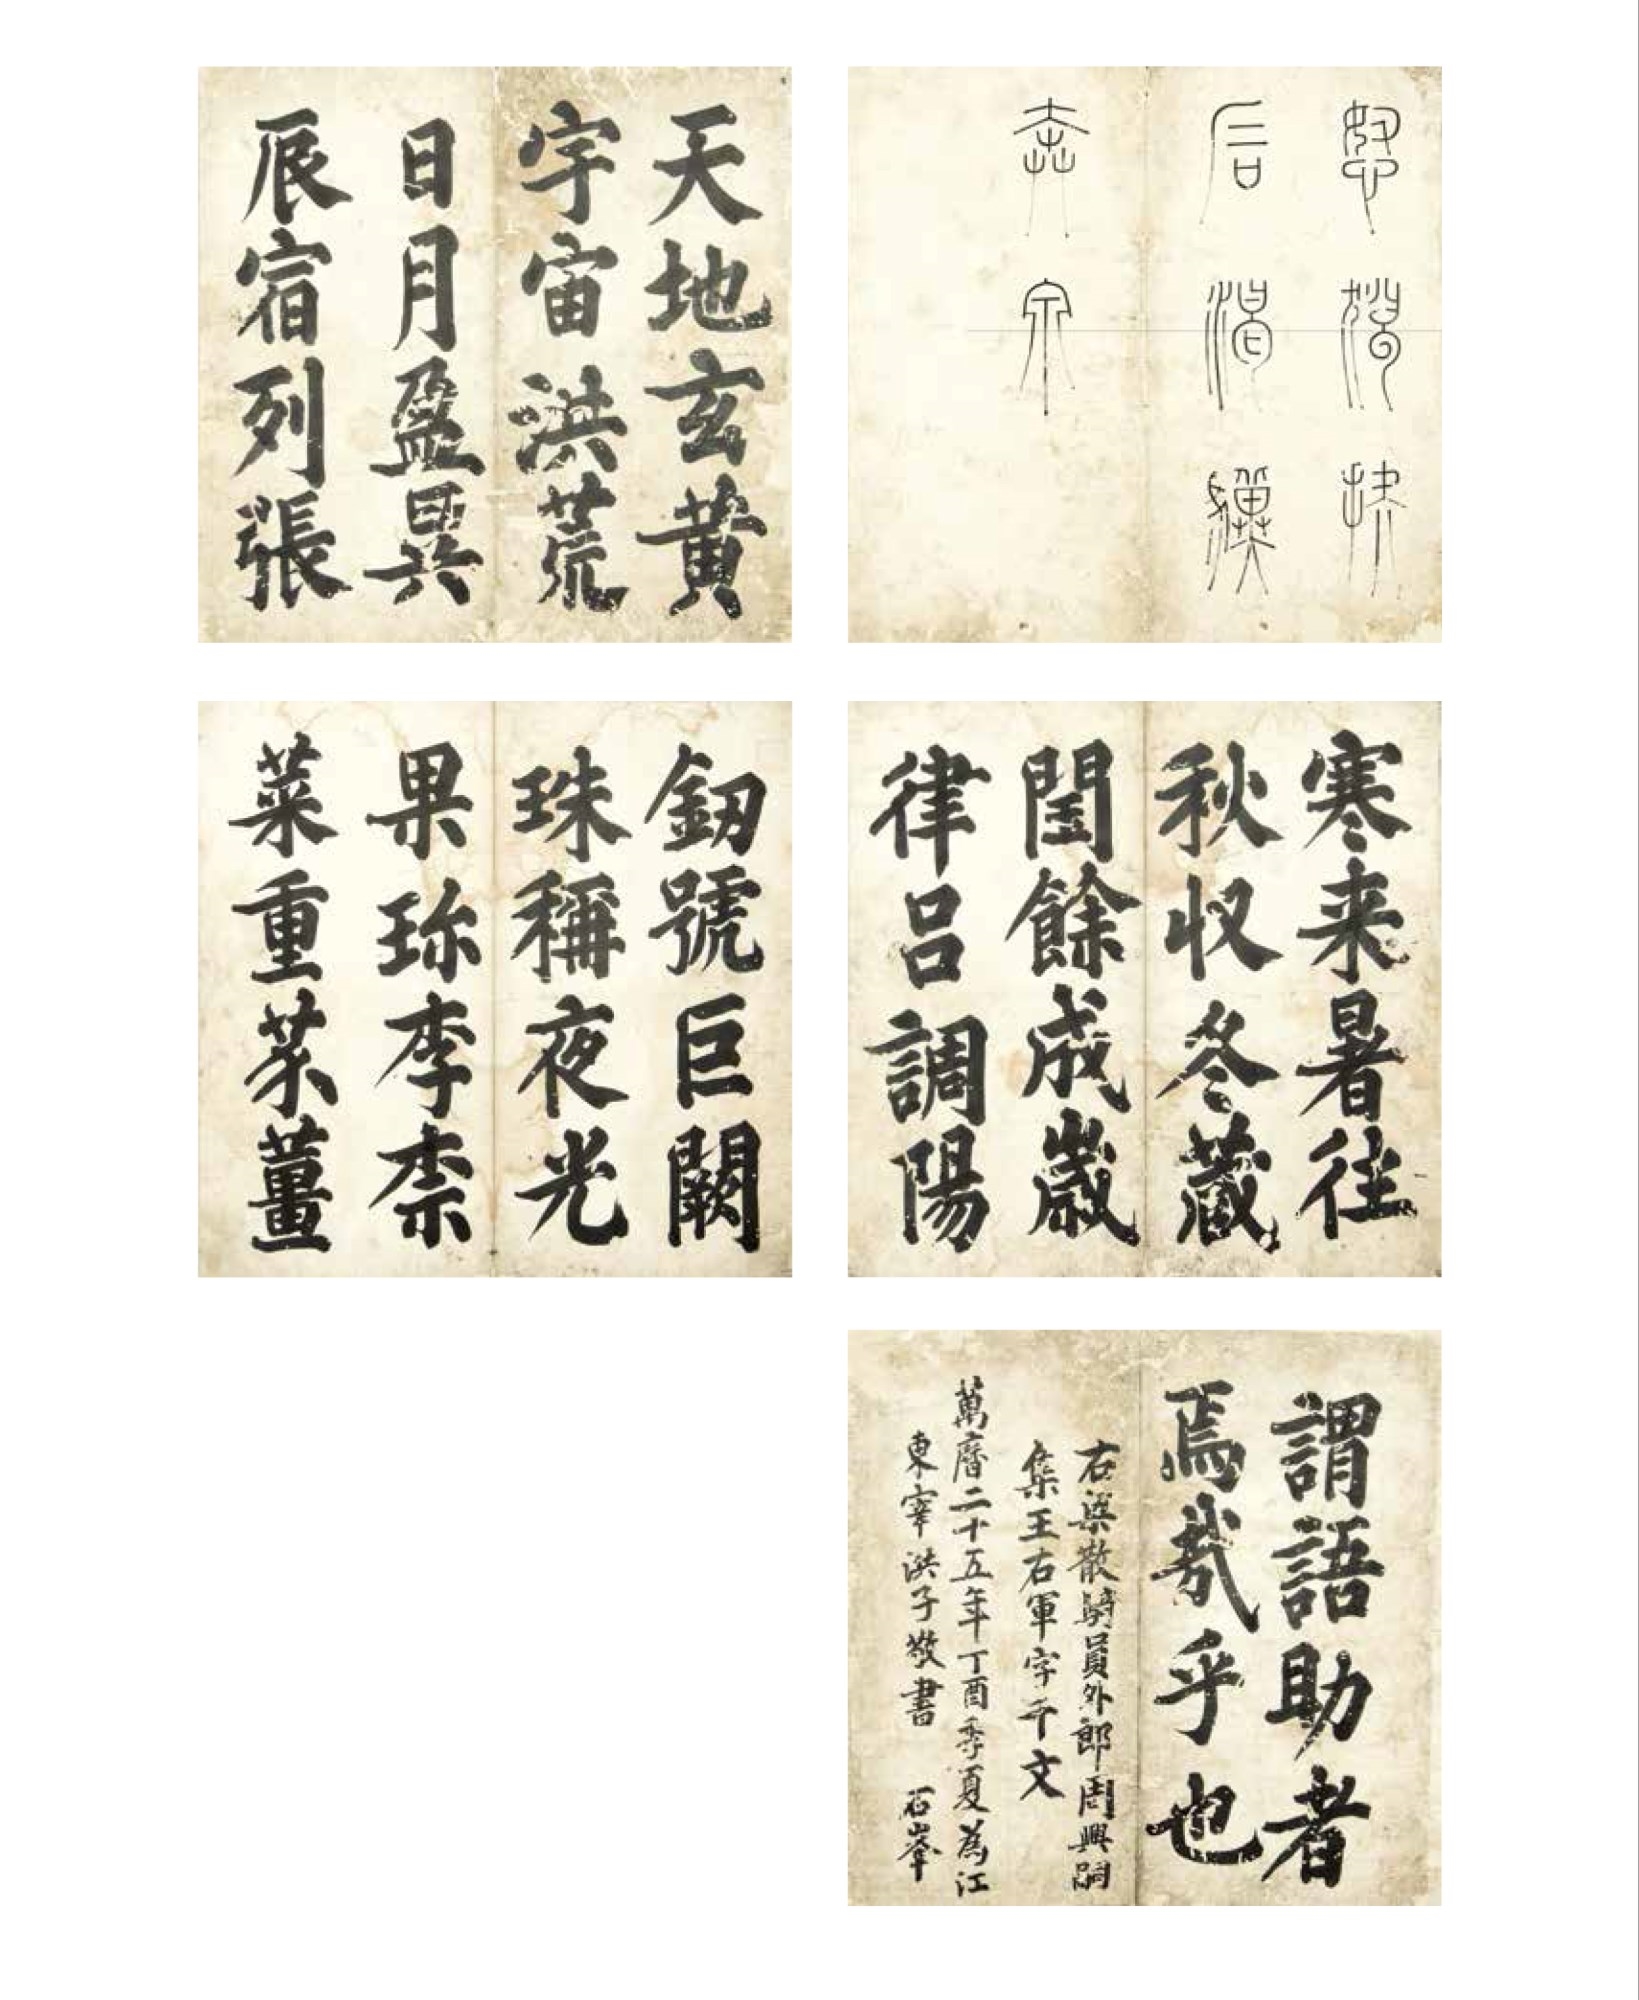 天地玄黃
宇宙洪荒
日月盈昃
辰宿列張
寒来暑往
秋収冬藏
閏餘成歲
律呂調陽
釼號巨闕
珠稱夜光
果珎李柰
菜重芥薑
謂語助者
焉哉乎也
右梁散騎員外郎周興嗣
集王右軍字千文
萬曆二十五年丁酉季夏為江
東宰洪子敬書 石峯